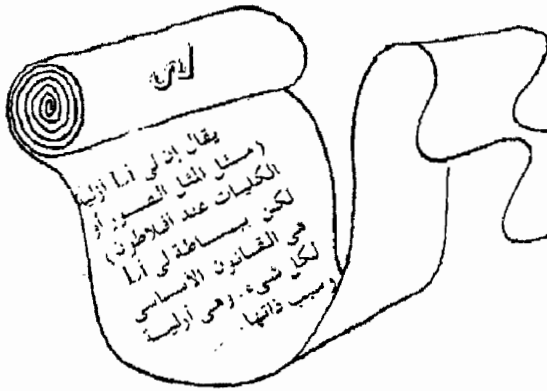 لى
يقال إن لى أ.ا أزلية
(مثل المثل الصور أو
الكليات عند أفلاطون)
لكن ببساطة لى أ.ا
هى القانون الأساسى
لكل شىء. وهى أزلية
وسبب ذاتها.